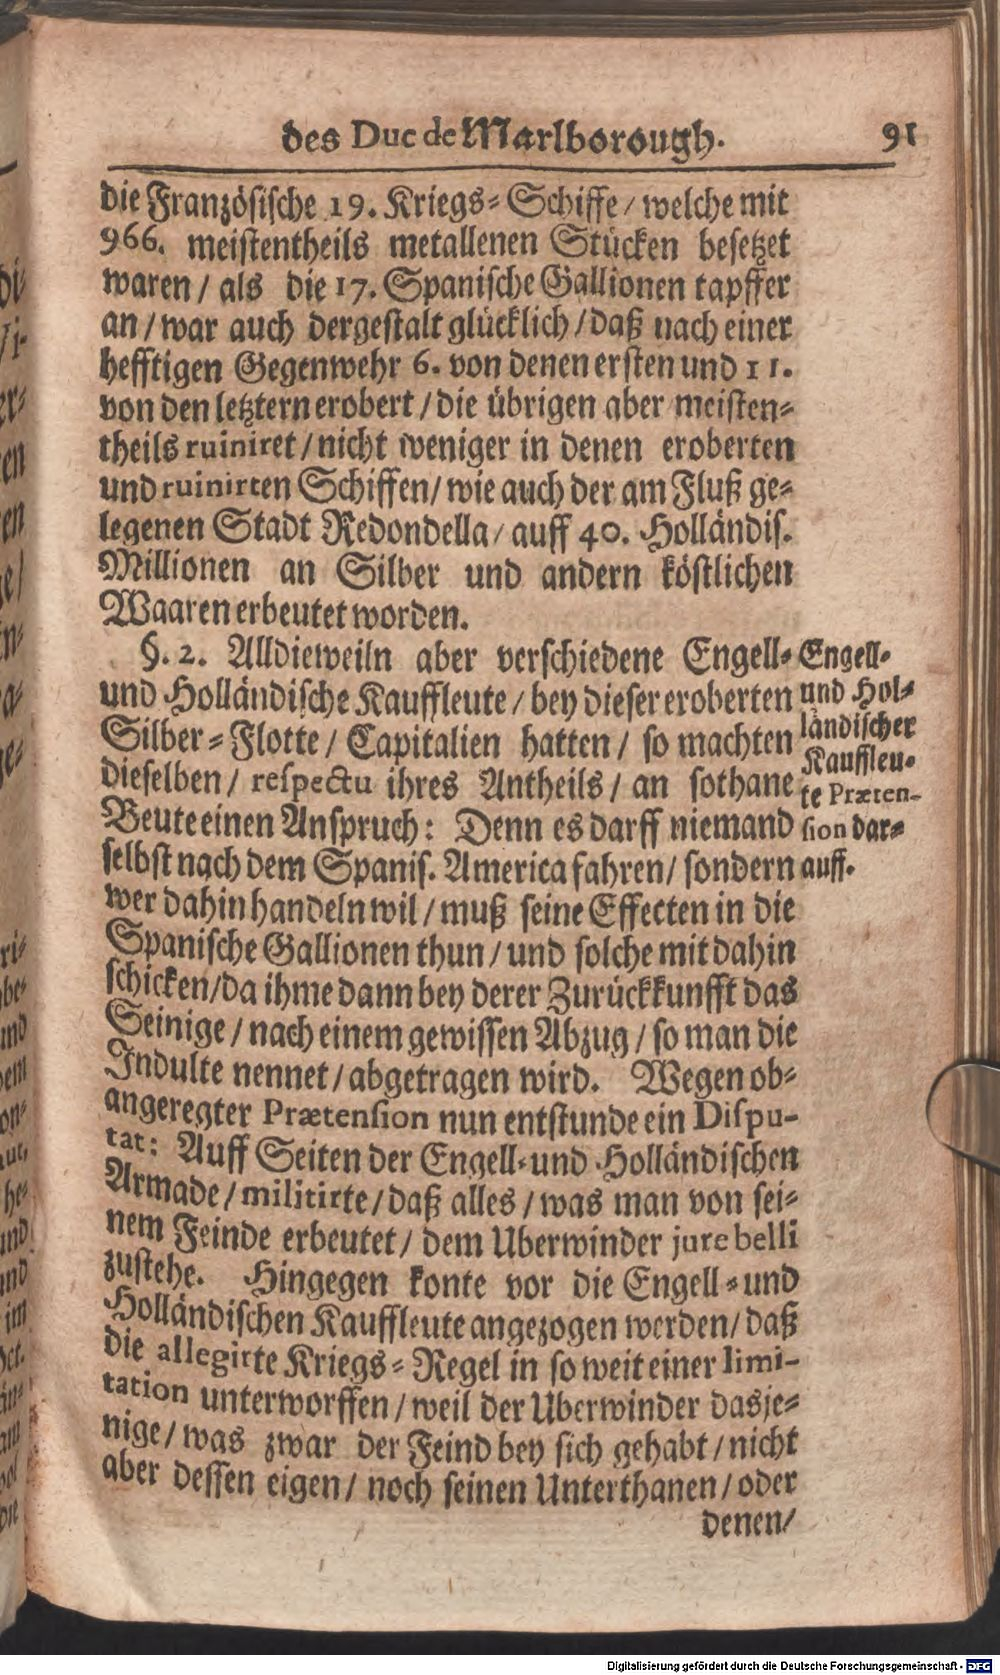 des Duc de Marlborough. 91
die Französische 19. Kriegs-Schiffe/ welche mit
966. meistentheils metallenen Stücken besetzet
waren/ als die 17. Spanische Gallionen tapffer
an/ war auch dergestalt glücklich/ daß nach einer
hefftigen Gegenwehr 6. von denen ersten und 11.
von den letztern erobert/ die übrigen aber meisten-
theils ruiniret/ nicht weniger in denen eroberten
und ruinirten Schiffen/ wie auch der am Fluß ge-
legenen Stadt Redondella/ auff 40. Holländis.
Millionen an Silber und andern köstlichen
Waaren erbeutet worden.
§. 2. Alldieweiln aber verschiedene Engell-
und Holländische Kauffleute/ bey dieser eroberten
Silber-Flotte/ Capitalien hatten/ so machten
dieselben/ respectu ihres Antheils/ an sothane
Beute einen Anspruch: Denn es darff niemand
selbst nach dem Spanis. America fahren/ sondern
wer dahin handeln wil/ muß seine Effecten in die
Spanische Gallionen thun/ und solche mit dahin
schicken/ da ihme dann bey derer Zurückkunfft das
Seinige/ nach einem gewissen Abzug/ so man die
Indulte nennet/ abgetragen wird. Wegen ob-
angeregter Prætension nun entstunde ein Dispu-
tat: Auff Seiten der Engell- und Holländischen
Armade/ militirte/ daß alles/ was man von sei-
nem Feinde erbeutet/ dem Uberwinder jure belli
zustehe. Hingegen konte vor die Engell- und
Holländischen Kauffleute angezogen werden/ daß
die allegirte Kriegs-Regel in so weit einer limi-
tation unterworffen/ weil der Uberwinder dasje-
nige/ was zwar der Feind bey sich gehabt/ nicht
aber dessen eigen/ noch seinen Unterthanen/ oder
denen/
Engell-
und Hol-
ländischer
Kauffleu-
te Præten-
sion dar-
auff.
Digitalisierung gefördert durch die Deutsche Forschungsgemeinschaft - DFG